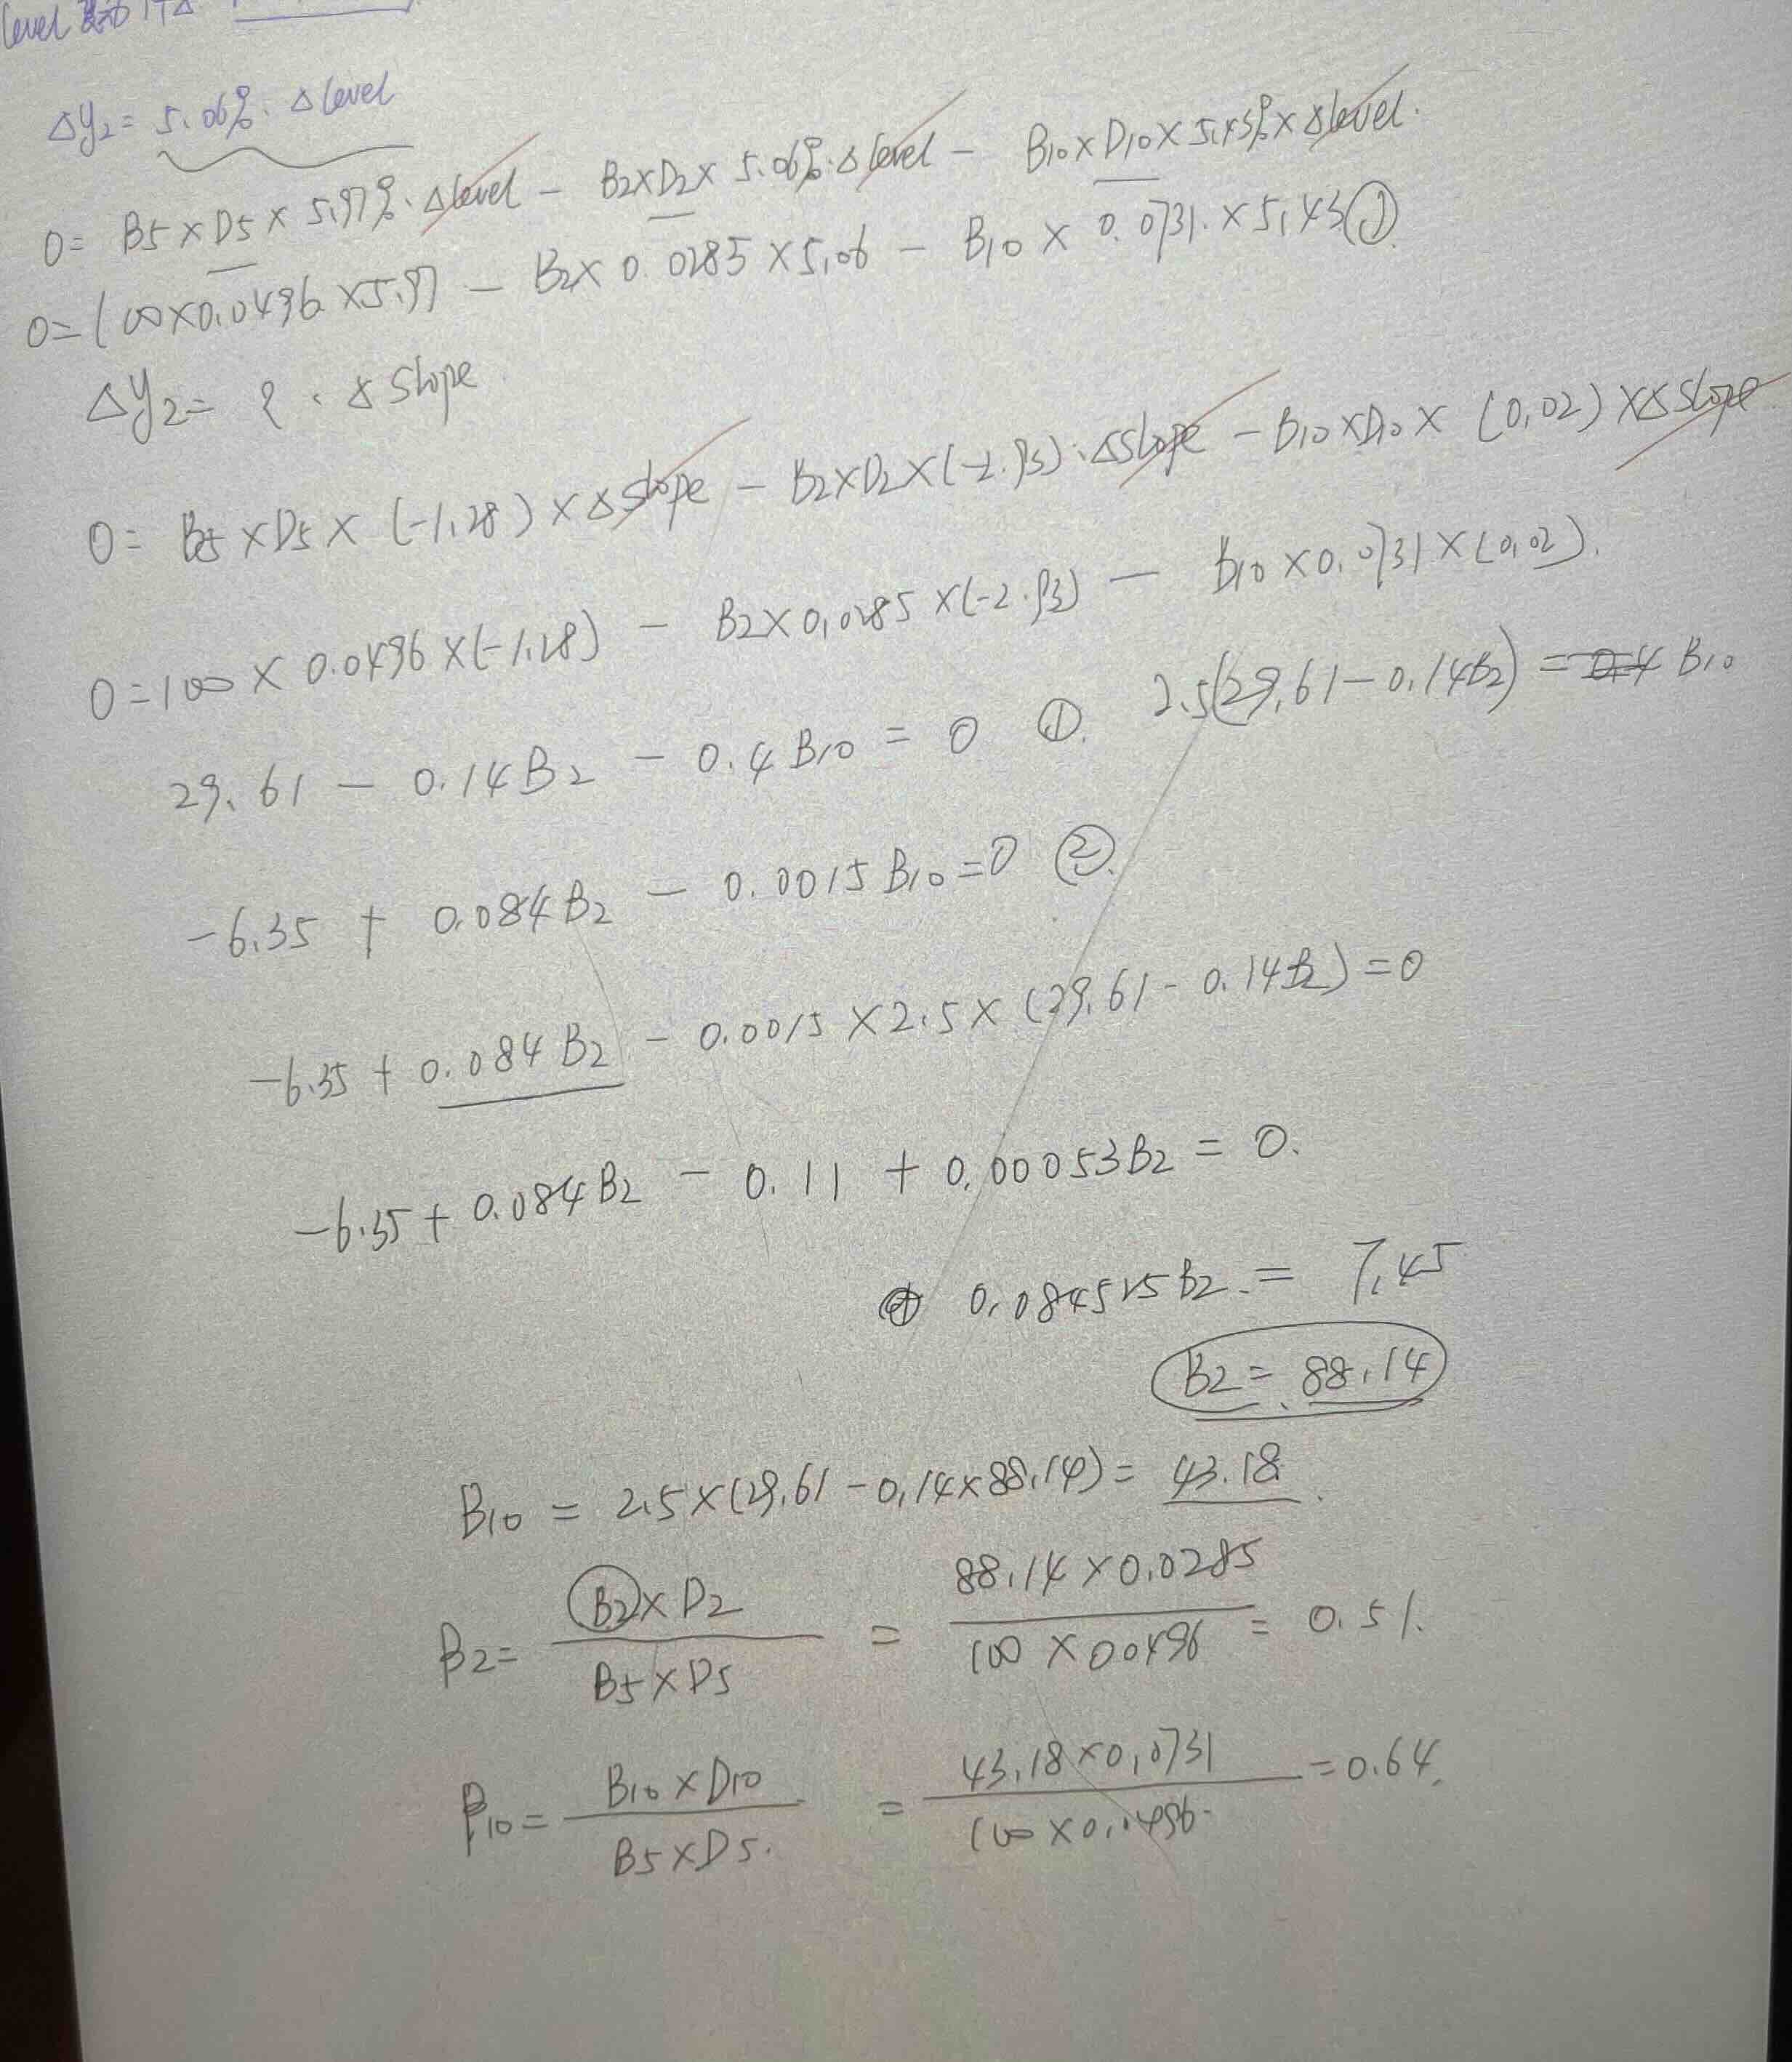 level
Δy2 = 5.06%·Δlevel
0 = B5×D5×5.97%·Δlevel − B2×D2×5.06%·Δlevel − B10×D10×5.43%×Δlevel.
0 = 100×0.0496×5.97 − B2×0.0285×5.06 − B10×0.0731×5.43 ①
Δy2 = ?·ΔSlope
0 = B5×D5×(-1.28)×Δslope − B2×D2×(-2.93)·ΔSlope − B10×D10×(0.02)×ΔSlope
0 = 100×0.0496×(-1.28) − B2×0.0285×(-2.93) − B10×0.0731×(0.02).
29.61 − 0.14B2 − 0.4B10 = 0 ①. 2.5(29.61−0.14B2) = B10
-6.35 + 0.084B2 − 0.0015B10 = 0 ②.
-6.35 + 0.084B2 − 0.0015×2.5×(29.61−0.14B2) = 0
-6.35 + 0.084B2 − 0.11 + 0.00053B2 = 0.
0.084525B2 = 7.45
B2 = 88.14
B10 = 2.5×(29.61−0.14×88.14) = 43.18.
β2 = B2×D2 / B5×D5 = 88.14×0.0285 / 100×0.0496 = 0.51.
β10 = B10×D10 / B5×D5. = 43.18×0.0731 / 100×0.0496 = 0.64.